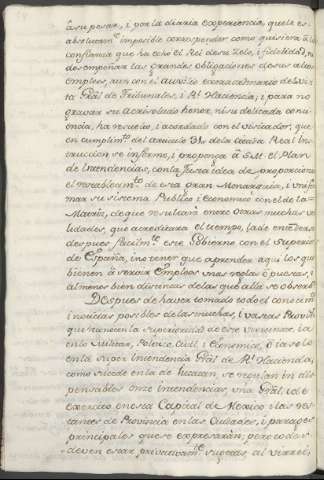 à su pesar, i por la diaria experiencia, que le es
absolutam.te imposible corresponder como quisiera à la
confianza que ha echo el Rei de su Zelo, i fidelidad, ni
desempeñar las grandes obligaciones de sus altos
empleos, aun con el auxilio extraordinario de Visi
ta Gral de Tribunales, i R.l Hacienda; i para no
gravar su acrisolado honor, ni su delicada conci
encia, ha resuelto, i acordado con el Visitador, que
en cumplim.to del articulo de la citada Real Ins
truccion se informe, i proponga à S.M. el Plan
de Intendencias, con la Justa idea de proporcionar
el restablecim.to de esta gran Monarquia, i unifor
mar su sistema Publico i Economico con el de la
Matriz, de que resultarà entre otras muchas uti
lidades, que acreditarà el tiempo, la de entenderse
despues facilm.te este Gobierno con el Superior
de España, sin tener que aprender aqui los que
bienen à servir Empleos unas reglas opuestas, i
al menos bien distintas de las que allà se observan
Despues de haver tomado todo el conocim.to
i noticias posibles de las muchas, i vastas Provin
que reconocen la Superioridad de este Virreinato, ia
en lo Militar, Politico, Civil, i Economico, ò ia solo
en la Super Intendencia Gral de R.l Hacienda,
como sucede en la de Yucatan, se regulan in dis
pensables once Intendencias, una Gral, i de
Exercito en esta Capital de Mexico i las res
tantes de Provincia en las Ciudades, i parages
principales que se expresaràn; pero todos
deven estar privativam.te sugetos, al Virrei,